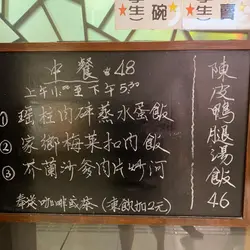 生碗
學生賣
中餐 48
上午11:00至下午5:30
① 瑤柱肉碎蒸水蛋飯
② 家鄉梅菜扣肉飯
③ 不蘭沙爹肉片炒河
奉送咖啡或茶(凍飲加2元)
陳皮鴨腿湯飯
46